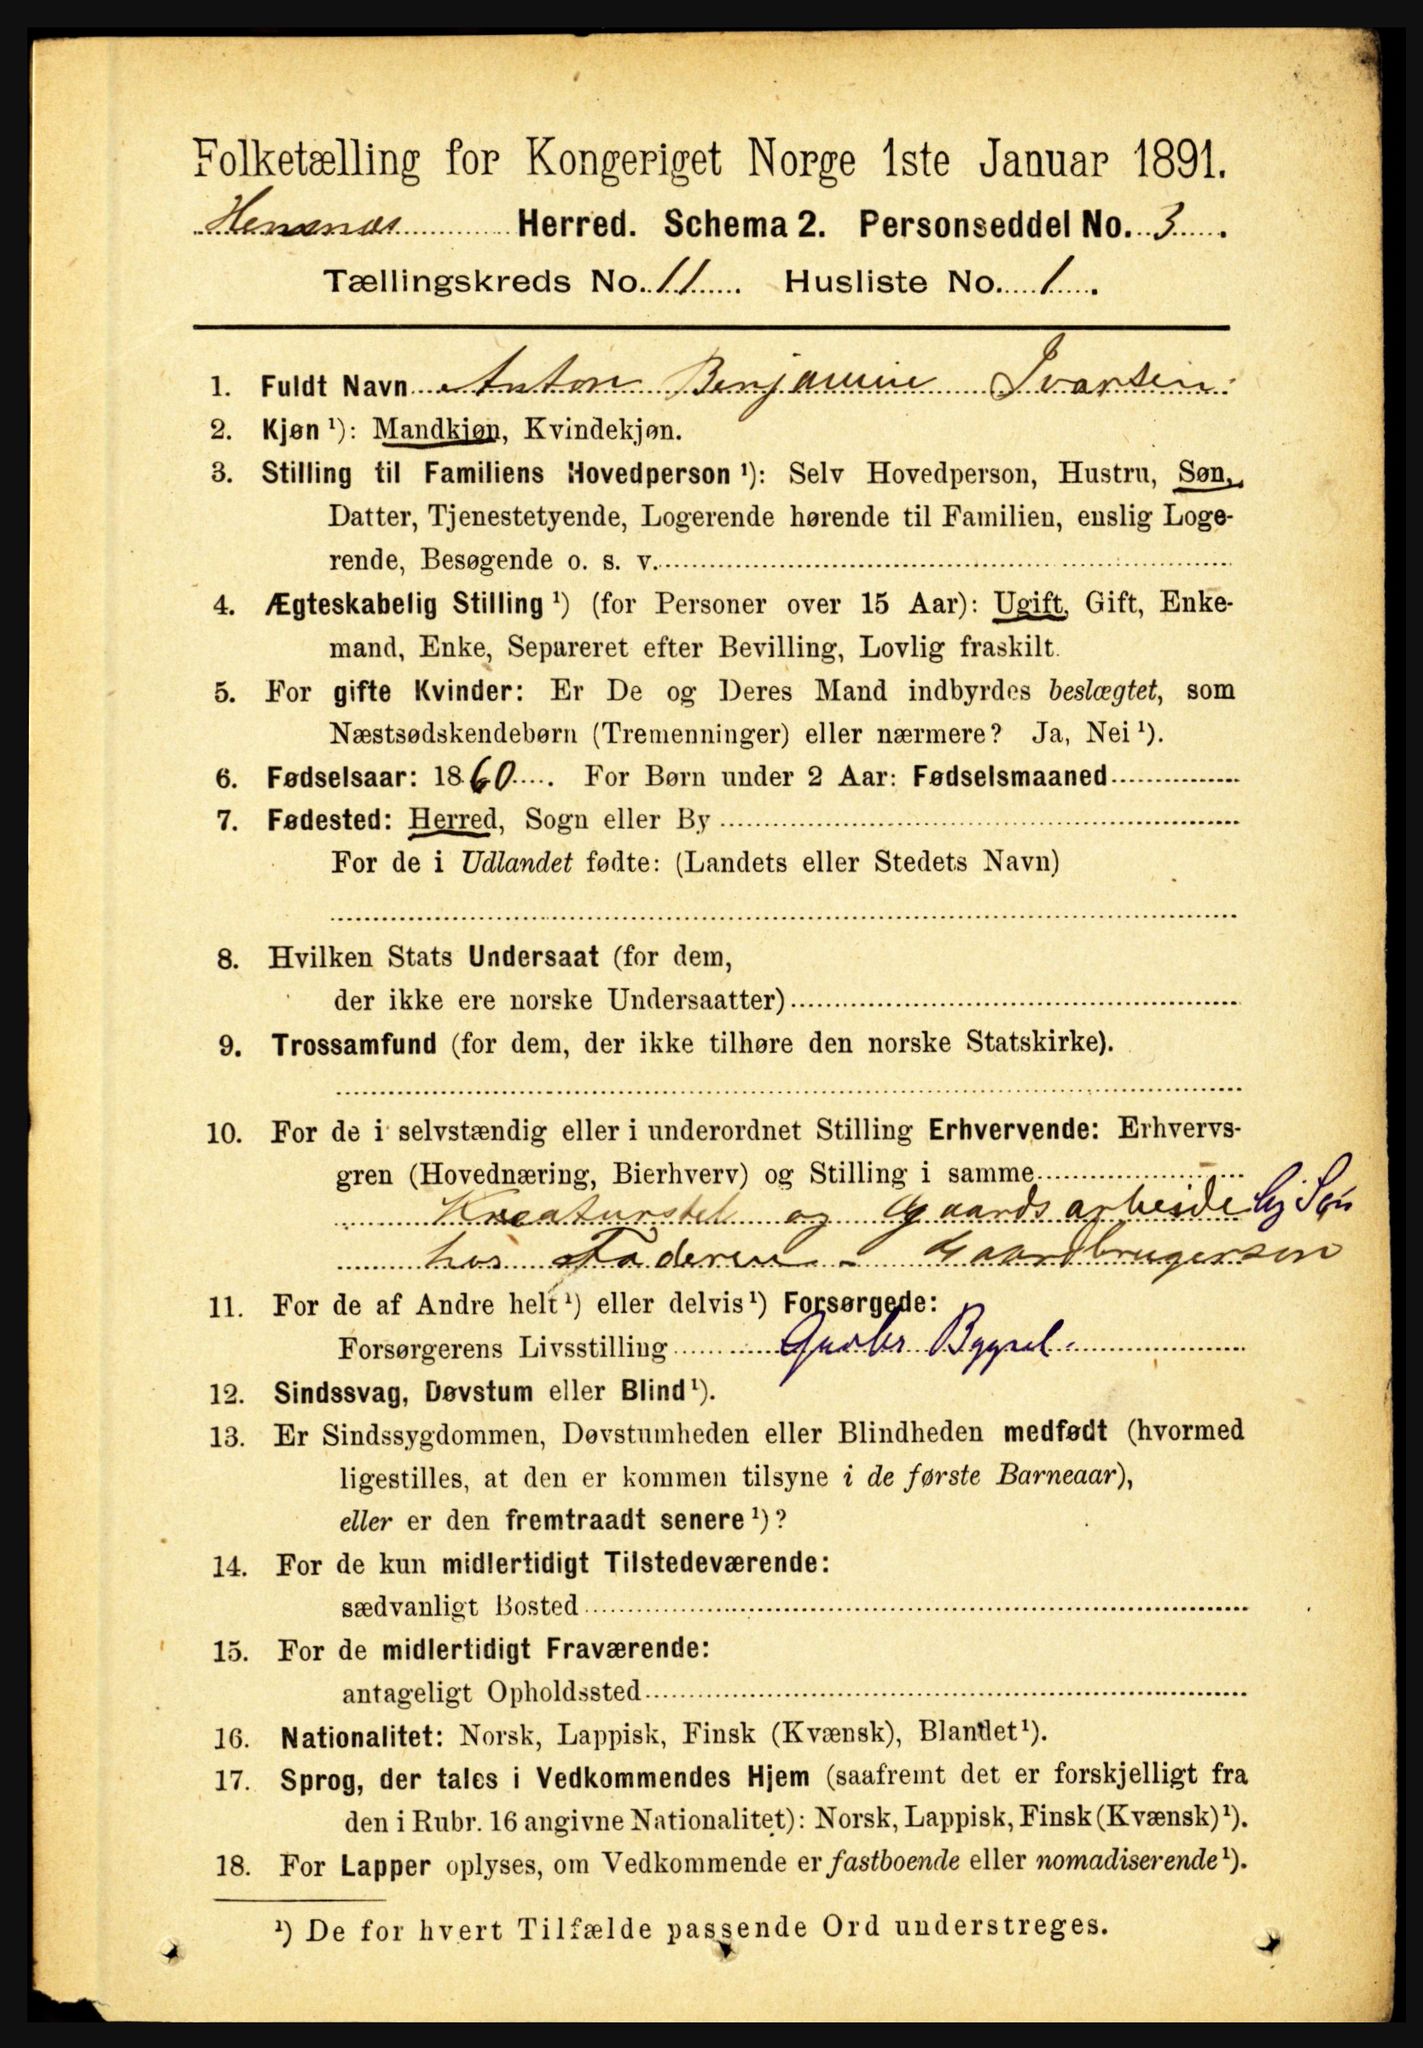 Folketælling for Kongeriget Norge 1ste Januar 1891.
Hemnæs Herred. Schema 2. Personseddel No. 3.
Tællingskreds No. 11. Husliste No. 1.
1. Fuldt Navn Anton Benjamin Ivarsen
2. Kjøn ¹): Mandkjøn, Kvindekjøn.
3. Stilling til Familiens Hovedperson ¹): Selv Hovedperson, Hustru, Søn,
Datter, Tjenestetyende, Logerende hørende til Familien, enslig Loge-
rende, Besøgende o. s. v.
4. Ægteskabelig Stilling ¹) (for Personer over 15 Aar): Ugift, Gift, Enke-
mand, Enke, Separeret efter Bevilling, Lovlig fraskilt.
5. For gifte Kvinder: Er De og Deres Mand indbyrdes beslægtet, som
Næstsødskendebørn (Tremenninger) eller nærmere? Ja, Nei ¹).
6. Fødselsaar: 1860. For Børn under 2 Aar: Fødselsmaaned
7. Fødested: Herred, Sogn eller By
For de i Udlandet fødte: (Landets eller Stedets Navn)
8. Hvilken Stats Undersaat (for dem,
der ikke ere norske Undersaatter)
9. Trossamfund (for dem, der ikke tilhøre den norske Statskirke).
10. For de i selvstændig eller i underordnet Stilling Erhvervende: Erhvervs-
gren (Hovednæring, Bierhverv) og Stilling i samme
Kreaturstel og Gaardsarbeide Søn
hos Faderen - Gaardbrugersøn
11. For de af Andre helt ¹) eller delvis ¹) Forsørgede:
Forsørgerens Livsstilling Gaabr Bygsel
12. Sindssvag, Døvstum eller Blind ¹).
13. Er Sindssygdommen, Døvstumheden eller Blindheden medfødt (hvormed
ligestilles, at den er kommen tilsyne i de første Barneaar),
eller er den fremtraadt senere ¹)?
14. For de kun midlertidigt Tilstedeværende:
sædvanligt Bosted
15. For de midlertidigt Fraværende:
antageligt Opholdssted
16. Nationalitet: Norsk, Lappisk, Finsk (Kvænsk), Blandet ¹).
17. Sprog, der tales i Vedkommendes Hjem (saafremt det er forskjelligt fra
den i Rubr. 16 angivne Nationalitet): Norsk, Lappisk, Finsk (Kvænsk) ¹).
18. For Lapper oplyses, om Vedkommende er fastboende eller nomadiserende ¹).
¹) De for hvert Tilfælde passende Ord understreges.